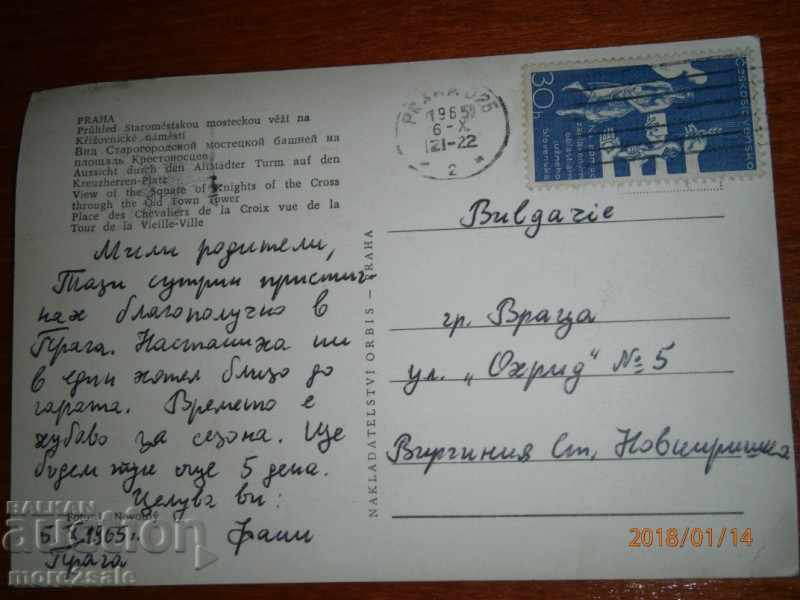 PRAHA
Průhled Staroměstskou mosteckou věží na
Křižovnické náměstí
Вид Старогородской мостецкой башней на
площадь Крестоносцев
Aussicht durch den Altstädter Turm auf den
Kreuzherren-Platz
View of the Square of Knights of the Cross
through the Old Town Tower
Place des Chevaliers de la Croix vue de la
Tour de la Vieille-Ville
Мили родители,
Тази сутрин пристиг-
нах благополучно в
Прага. Настаниха ни
в един хотел близо до
гарата. Времето е
хубаво за сезона. Ще
бъдем тук още 5 дена.
Целува ви:
Фани
5. X. 1965 г.
Прага
NAKLADATELSTVÍ ORBIS — PRAHA
PRAHA 025
1965
6-X
21-22
2
30h
Bulgarie
гр. Враца
ул. „Охрид" № 5
Виргиния Ст. Новкиришка
2018/01/14
BALKAN
auction
morezsale